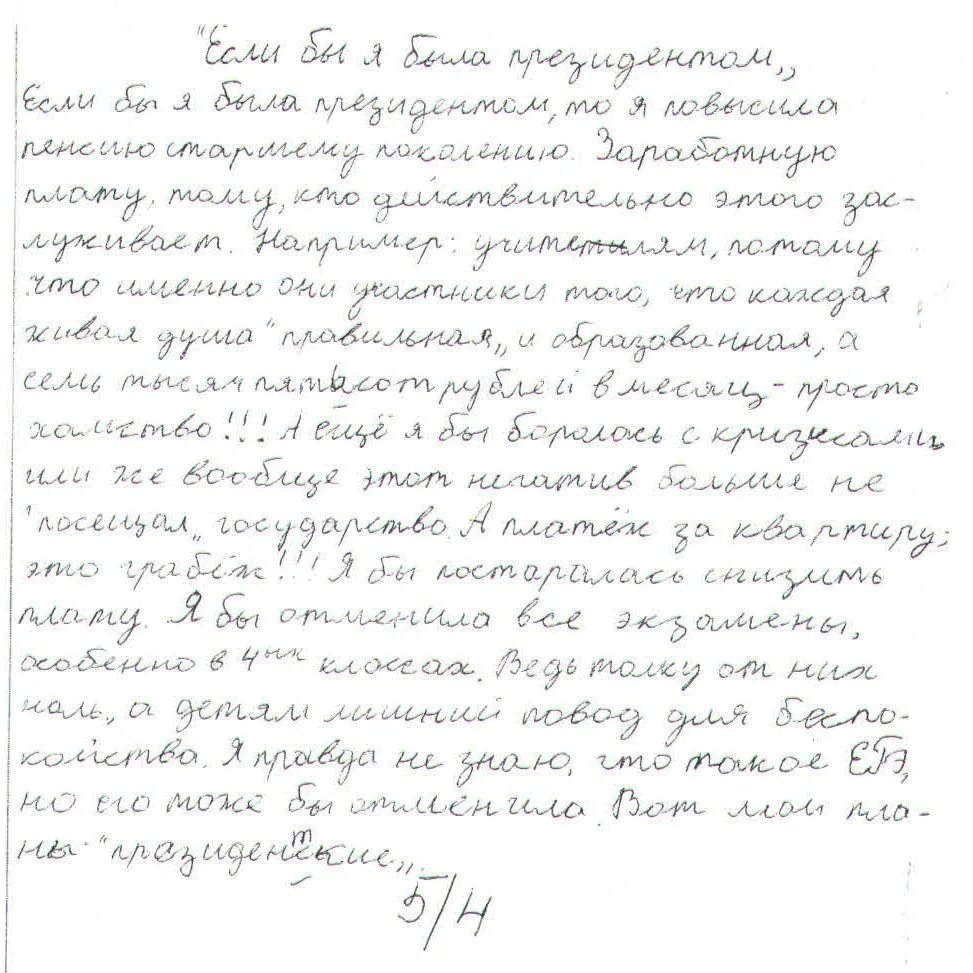 "Если бы я была президентом„
Если бы я была президентом, то я повысила
пенсию старшему поколению. Заработную
плату, тому, кто действительно этого зас-
луживает. Например: учителям, потому
что именно они участники того, что каждая
живая душа "правильная„ и образованная, а
семь тысяч пятьсот рублей в месяц - просто
хамство!!! А ещё я бы боролась с кризисами,
или же вообще этот негатив больше не
"посещал„ государство. А платёж за квартиру;
это грабёж!!! Я бы постаралась снизить
плату. Я бы отменила все экзамены,
особенно в 4ых классах. Ведь толку от них
ноль, а детям лишний повод для беспо-
койства. Я правда не знаю, что такое ЕГЭ,
но его тоже бы отменила. Вот мои пла-
ны "президентские„.
5/4